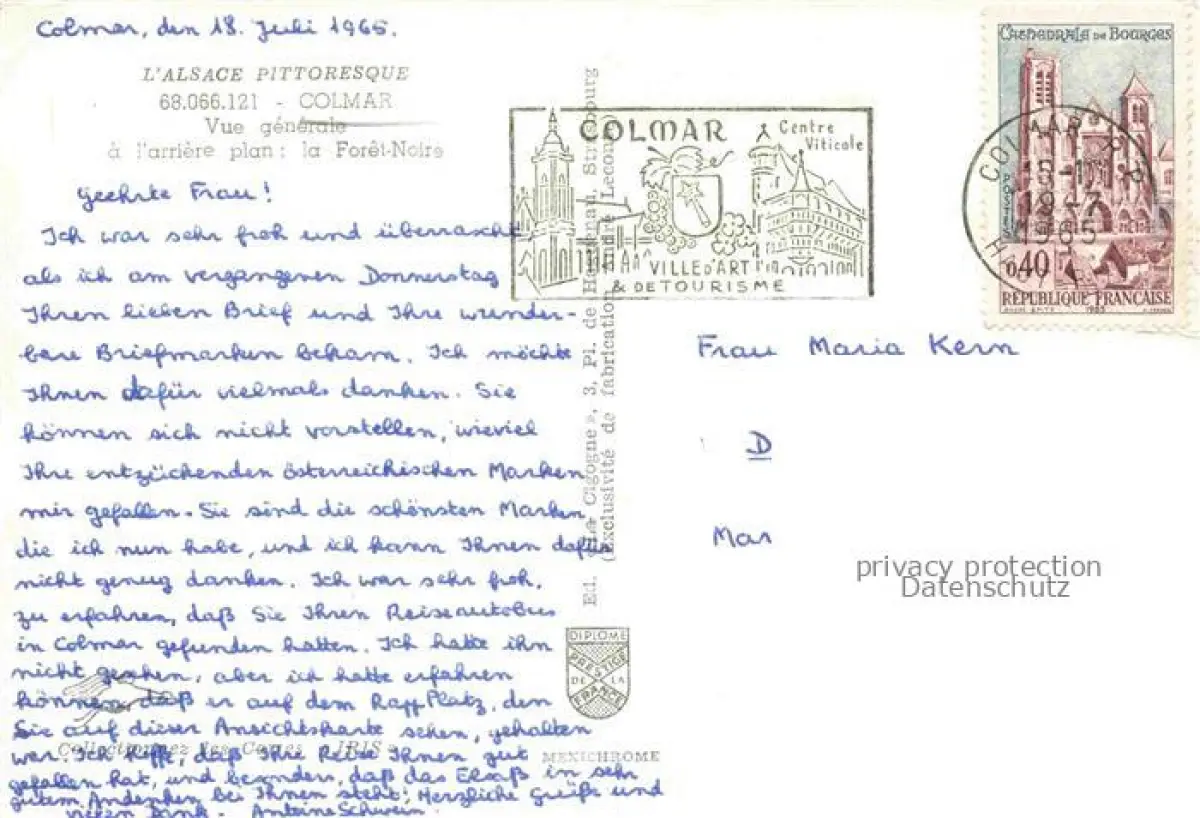 Colmar, den 18. Juli 1965.
L'ALSACE PITTORESQUE
68.066.121 - COLMAR
Vue générale
à l'arrière plan : la Forêt-Noire
Geehrte Frau!
Ich war sehr froh und überrascht
als ich am vergangenen Donnerstag
Ihren lieben Brief und Ihre wunder-
bare Briefmarken bekam. Ich möchte
Ihnen dafür vielmals danken. Sie
können sich nicht vorstellen, wieviel
Ihre entzückenden österreichischen Marken
mir gefallen. Sie sind die schönsten Marken
die ich nun habe, und ich kann Ihnen dafür
nicht genug danken. Ich war sehr froh,
zu erfahren, daß Sie Ihren Reiseautobus
in Colmar gefunden hatten. Ich hatte ihn
nicht gesehen, aber ich hatte erfahren
können, daß er auf dem Rapp Platz, den
Sie auf dieser Ansichtskarte sehen, gehalten
war. Ich hoffe, daß Ihre Reise Ihnen gut
gefallen hat, und besonders, daß das Elsaß in sehr
gutem Andenken bei Ihnen steht! Herzliche Grüße und
vielen Dank - Antoine Schwein
Collectionnez les Cartes « IRIS »
Ed. « La Cigogne », 3, Pl. de Strasbourg
(Exclusivité de fabrication André Leconte)
DIPLOME
PRESTIGE
DE LA
FRANCE
MEXICHROME
COLMAR
Centre
Viticole
VILLE D'ART
& DE TOURISME
CATHEDRALE DE BOURGES
POSTES
0,40
RÉPUBLIQUE FRANÇAISE
1965
COLMAR R.P.
18-
19-7
1965
Frau Maria Kern
D
Mar
privacy protection
Datenschutz